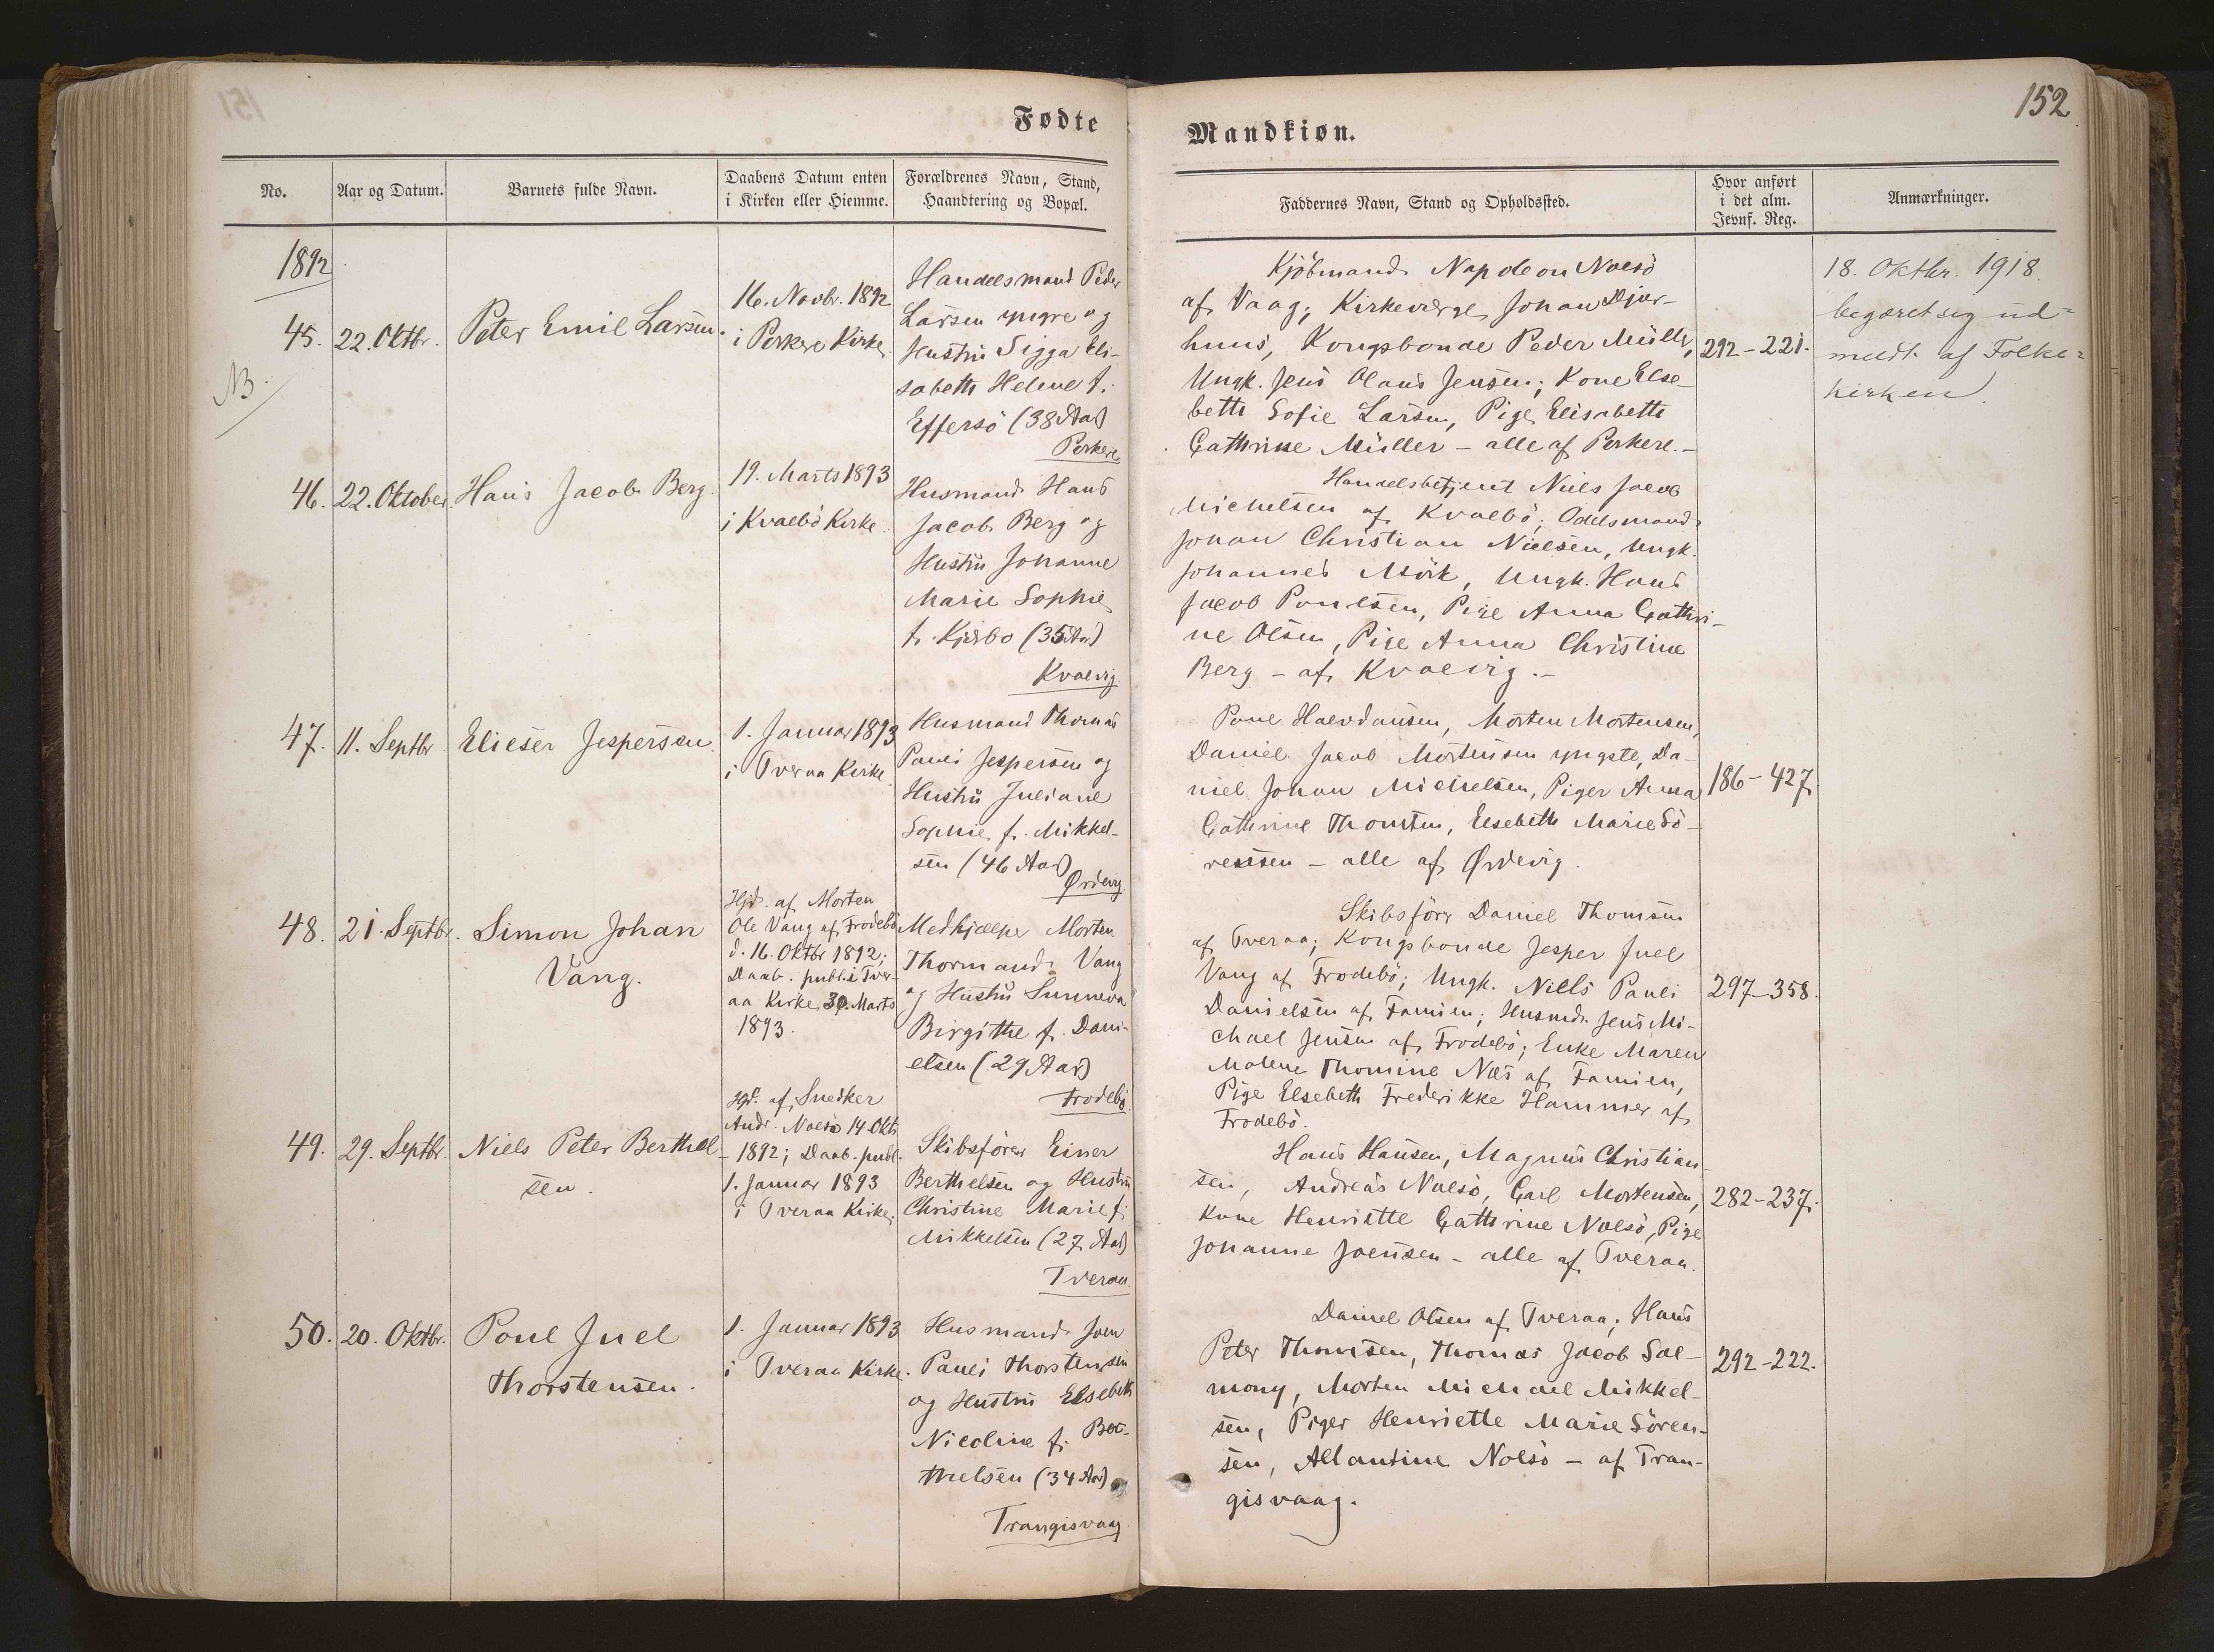 152
Fødte
Mandkiøn.
No.
Aar og Datum.
Barnets fulde Navn.
Daabens Datum enten
i Kirken eller Hiemme.
Forældrenes Navn, Stand,
Haandtering og Bopæl.
Faddernes Navn, Stand og Opholdssted.
Hvor anført
i det alm.
Jevnf. Reg.
Anmærkninger.
1892
NB.
45.
22. Oktbr.
Peter Emil Larsen.
16. Novbr. 1892
i Porkere Kirke
Handelsmand Peder
Larsen yngre og
Hustru Sigga Eli-
sabeth Helene f.
Effersö (38 Aar)
Porkere
Kjöbmand Napoleon Nolsö
af Vaag; Kirkeværge Johan Djur-
huus, Kongsbonde Peder Müller,
Ungk. Jens Olaus Jensen; Kone Else-
beth Sofie Larsen, Pige Elisabeth
Cathrine Müller - alle af Porkere.-
292-221.
18. Oktbr. 1918.
begæret sig ud=
meldt af Folke=
kirken.
46.
22. Oktober
Hans Jacob Berg.
19. Marts 1893
i Kvalbö Kirke.
Husmand Hans
Jacob Berg og
Hustru Johanne
Marie Sophie
f. Kjærbo (35 Aar)
Kvalvig
Handelsbetjent Niels Jacob
Michelsen af Kvalbö; Odelsmand
Johan Christian Nielsen, Ungk.
Johannes Mörk, Ungk. Hans
Jacob Poulsen, Pige Anna Cathri-
ne Olsen, Pige Anna Christine
Berg - af Kvalvig.-
47.
11. Septbr
Elieser Jespersen.
1. Januar 1893
i Tveraa Kirke
Husmand Thomas
Pauli Jespersen og
Hustru Juliane
Sophie f. Mikkel-
sen (46 Aar)
Ørdevig
Poul Halvdansen, Morten Mortensen,
Daniel Jacob Mortensen yngste, Da-
niel Johan Michelsen, Piger Anna
Cathrine Thomsen, Elsebeth Marie Sö-
rensen - alle af Ørdevig.
186-427.
48.
21. Septbr.
Simon Johan
Vang.
Hjd. af Morten
Ole Vang af Frodebö
d. 16. Oktbr 1892;
Daab. publ. i Tver-
aa Kirke 30. Marts
1893.
Medhjælper Morten
Thormand Vang
og Hustru Sunneva
Birgithe f. Dani-
elsen (29 Aar)
Frodebö.
Skibsförer Daniel Thomsen
af Tveraa; Kongsbonde Jesper Juel
Vang af Frodebö; Ungk. Niels Pauli
Danielsen af Famien; Husmd. Jens Mi-
chael Jensen af Frodebö; Enke Maren
Malene Thomine Næs af Famien,
Pige Elsebeth Frederikke Hammer af
Frodebö.
297-358.
49.
29. Septbr.
Niels Peter Berthel-
sen.
Hjd. af Snedker
Andr. Nolsö 14 Okt.
1892; Daab. publ.
1. Januar 1893
i Tveraa Kirke.
Skibsförer Einer
Berthelsen og Hustru
Christine Marie f.
Mikkelsen (27 Aar)
Tveraa.
Hans Hansen, Magnus Christian-
sen, Andreas Nolsö, Carl Mortensen,
Kone Henriette Cathrine Nolsö, Pige
Johanne Joensen - alle af Tveraa.
282-237.
50.
20. Oktbr.
Poul Juel
Thorstensen.
1. Januar 1893
i Tveraa Kirke.
Husmand Joen
Pauli Thorstensen
og Hustru Elsebeth
Nicoline f. Ber-
thelsen (34 Aar)
Trangisvaag
Daniel Olsen af Tveraa; Hans
Peter Thomsen, Thomas Jacob Sal-
mony, Morten Michael Mikkel-
sen, Piger Henriette Marie Sören-
sen, Allantine Nolsö - af Tran-
gisvaag.
292-222.